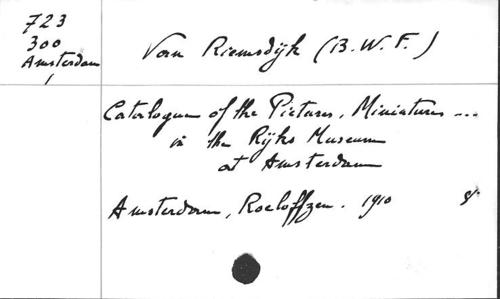 723
300
Amsterdam
1
Van Riemsdijk (B. W. F.)
Catalogue of the Pictures, Miniatures ...
in the Rijks Museum
at Amsterdam
Amsterdam, Roeloffzen. 1910